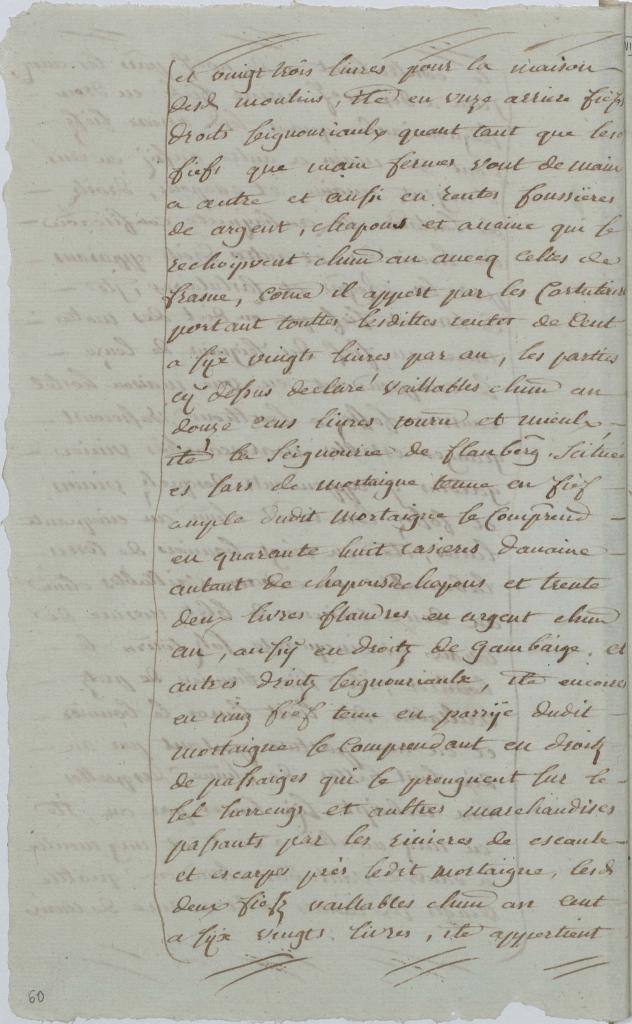 et vingt trois livres pour la maison
desd moulins, ite en unze arriere fiefs
droits seigneuriaulx quant tant que les
fiefs que main fermes vont de main
a autre et aussi en rentes foussieres
de argent, chapons et avaine qui se
rechoipvent chun an avecq celles de
frasne, come il appert par les Cartulaires
portant touttes lesdittes rentes de Cent
a six vingts livres par an, les parties
cy dessus declaré vaillables chun an
douze cens livres tourn et mieulx,
ite la Seignourie de flanberg. Scituee
es pars de mortaigne tenue en fief
ample dudit Mortaigne se Comprend
en quarante huit rasieres d'avaine
autant de chapons et trente
deux livres flandres en argent chun
an, aussy en droitz de Gambaige. et
autres droitz seignouriaulx, ite encores
en ung fief tenu en parrije dudit
mortaigne se Comprendant en droitz
de passaiges qui se prengnent sur le
sel horrengs et aultres marchandises
passants par les rivieres de escault
et escarpe près ledit mortaigne, lesd
deux fiefz vaillables chun an cent
a six vingts livres, ite appertient
60